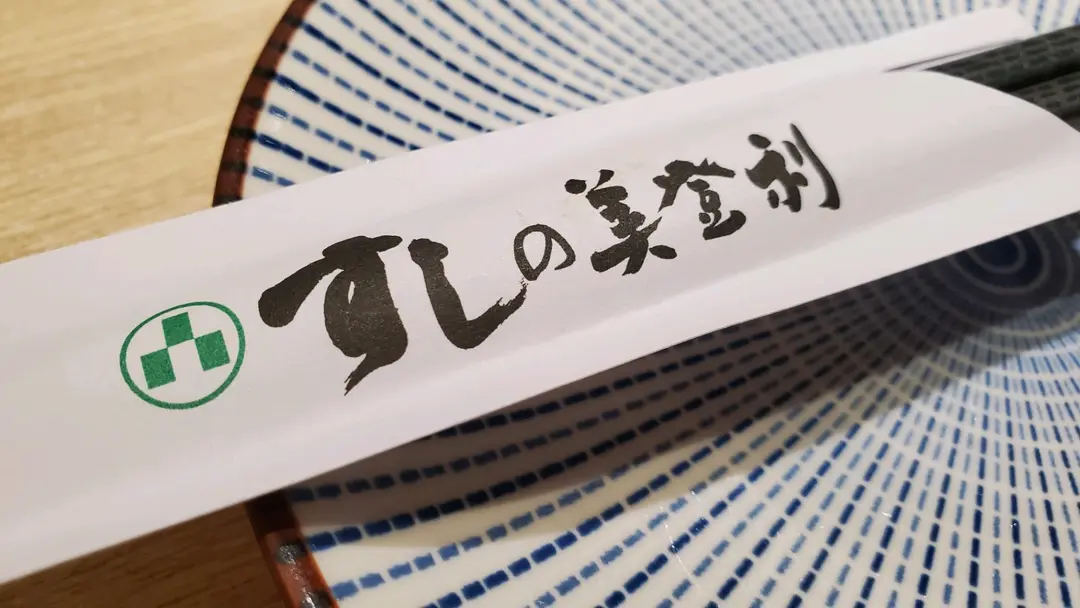 すしの美登利